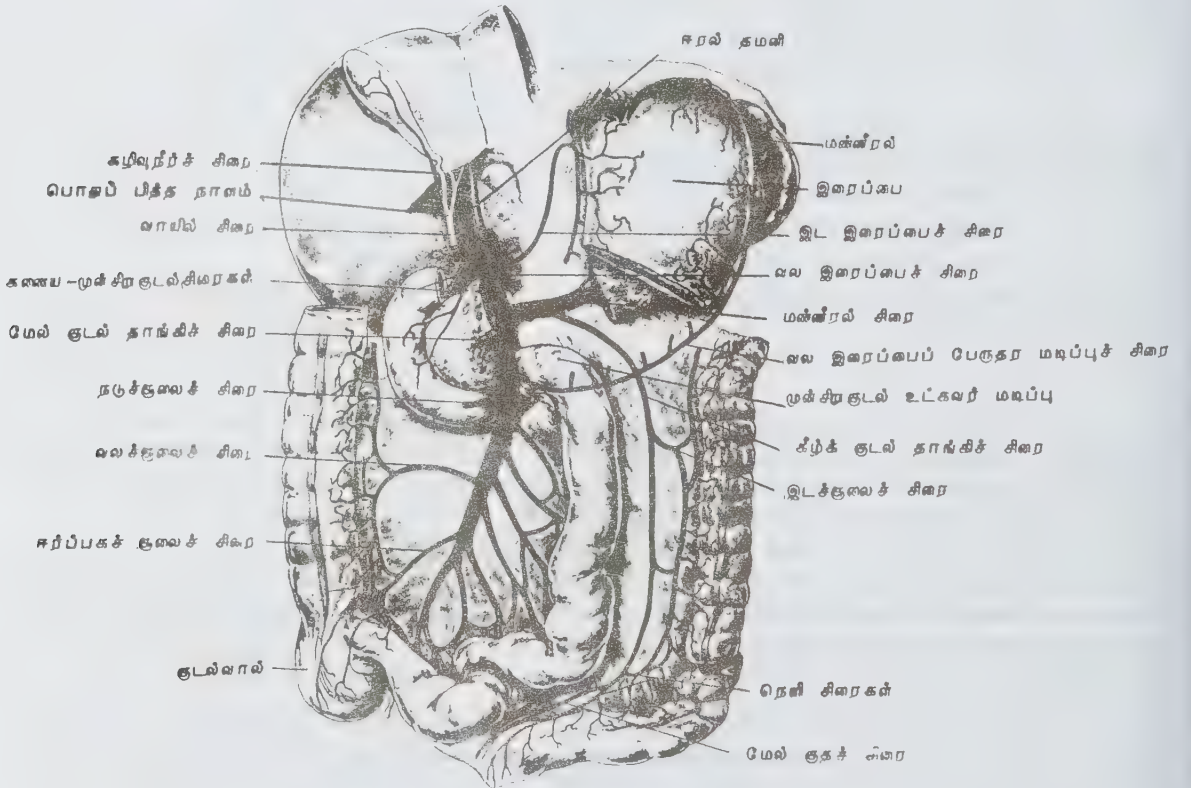 ஈரல் தமனி
கழிவுநீர்ச் சிரை
பொதுப் பித்த நாளம்
வாயில் சிரை
கணைய-முன்சிறுகுடல் சிரைகள்
மேல் குடல் தாங்கிச் சிரை
நடுச்சூலைச் சிரை
வலச்சூலைச் சிரை
ஈர்ப்பகச் சூலைச் சிரை
குடல்வால்
மண்ணீரல்
இரைப்பை
இட இரைப்பைச் சிரை
வல இரைப்பைச் சிரை
மண்ணீரல் சிரை
வல இரைப்பைப் பேருதர மடிப்புச் சிரை
முன்சிறுகுடல் உட்கவர் மடிப்பு
கீழ்க் குடல் தாங்கிச் சிரை
இடச்சூலைச் சிரை
நெளி சிரைகள்
மேல் குதச் சிரை